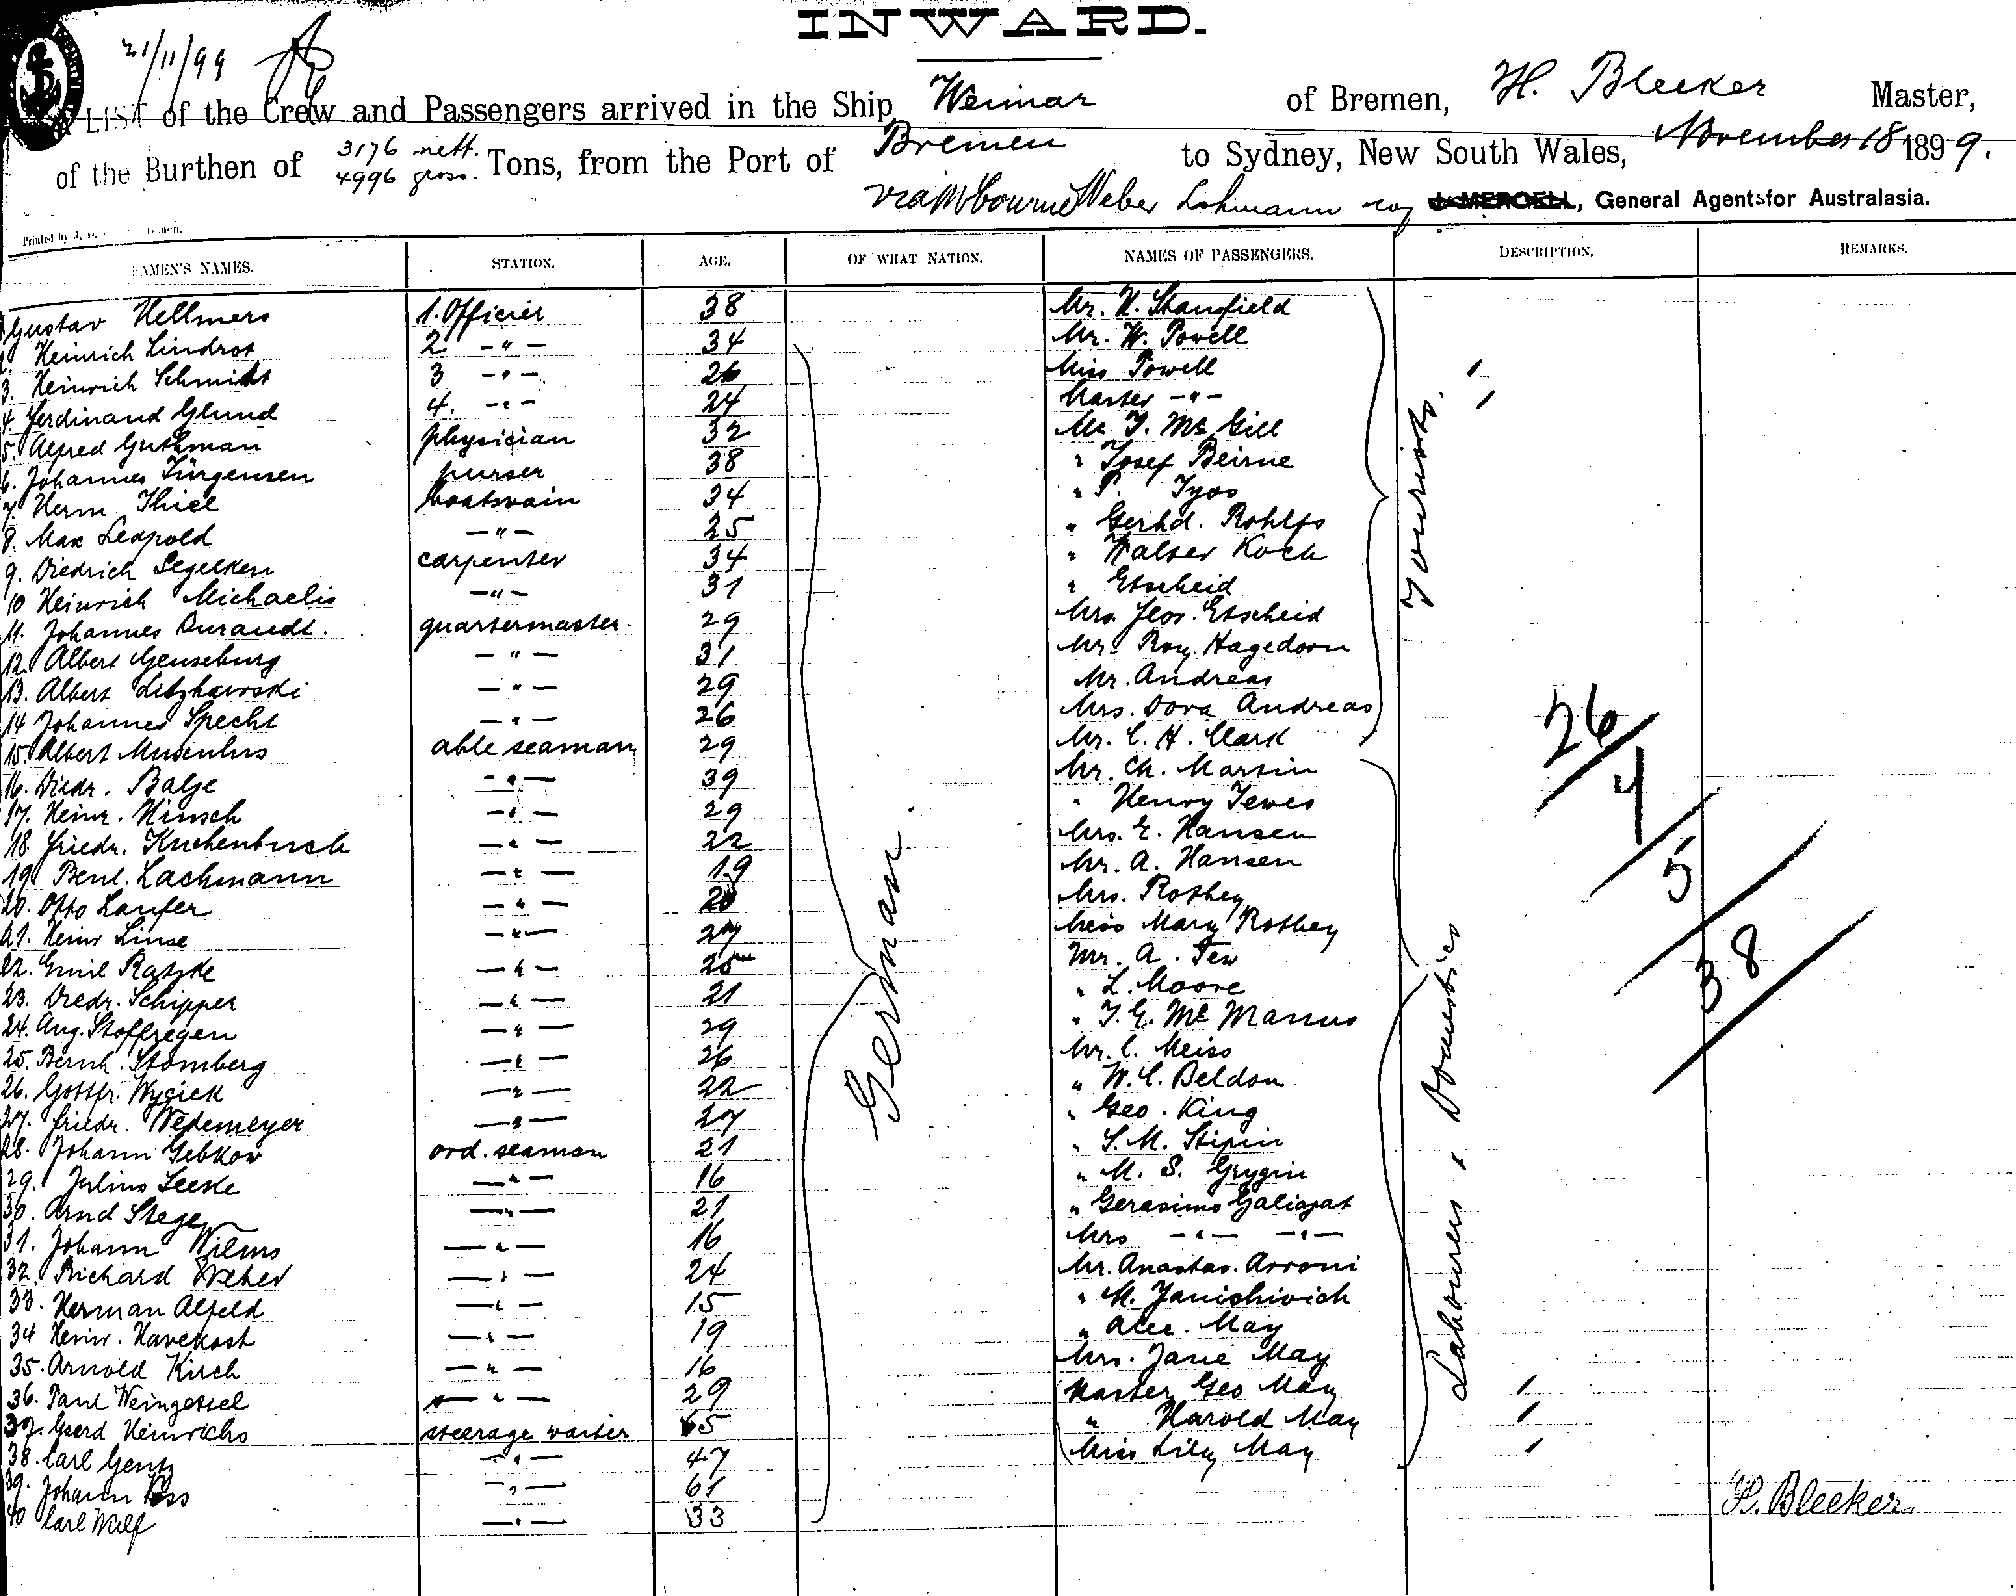 INWARD.
21/11/99
LIST of the Crew and Passengers arrived in the Ship Weimar of Bremen, H. Bleeker Master,
of the Burthen of 3176 nett. 4996 gross. Tons, from the Port of Bremen to Sydney, New South Wales, November 18 1899.
via Weber Lohmann J. MERGELL, General Agents for Australasia.
SEAMEN'S NAMES. STATION. AGE. OF WHAT NATION. NAMES OF PASSENGERS. DESCRIPTION. REMARKS.
Gustav Hellmers 1. Officier 38 Mr. H. Stansfield
2. Heinrich Lindrot 2 -"- 34 Mr. W. Powell
3. Heinrich Schmidt 3 -"- 26 Miss Powell
4. Ferdinand Glund 4. -"- 24 Master -"-
5. Alfred Guthman physician 32 Mr. T. Mc Gill
6. Johannes Jürgensen purser 38 " Josef Beirne
7. Herm Thiel boatswain 34 " P. Tyos
8. Max Leopold -"- 25 " Gerhd. Rohlfs
9. Diedrich Segelken carpenter 34 " Walter Koch
10 Heinrich Michaelis -"- 31 " Etscheid
11. Johannes Durandt. quartermaster 29 Mrs. Flor. Etscheid
12. Albert Genseburg -"- 31 Mr. Roy. Hagedorn
13. Albert -"- 29 Mr. Andreas
14 Johannes Specht -"- 26 Mrs. Dora Andreas
15. Albert Musculus able seaman 29 Mr. C. H. Clark
16. Diedr. Balje -"- 39 Mr. Ch. Martin
17. Heinr. Hinsch -"- 29 " Henry Tewes
18. Friedr. Kuchenbuch -"- 22 Mrs. E. Hansen
19. Lachmann -"- 19 Mr. A. Hansen
20. Otto Laufer -"- 20 Mrs. Rothey
21. Heinr Linse -"- 27 Miss Mary Rothey
22. Emil Ratzke -"- 25 Mr. A. Tew
23. Diedr. Schipper -"- 21 " L. Moore
24. Aug. Stoffregen -"- 29 " T. E. Mc Manus
25. Bernh. Stomberg -"- 26 Mr. C. Meiss
26. Gottfr. Wycisk -"- 22 " W. C. Beldon
27. Friedr. Wedemeyer -"- 27 " Geo. King
28. Johann Gebkow ord. seaman 21 " S. M. Stipin
29. Julius Leeke -"- 16 " M. S. Grygin
30. Arnd Stege -"- 21 " Gerasimo Galiazat
31. Johann Wilms -"- 16 Mrs -"- -"-
32. Richard Weber -"- 24 Mr. Anastas. Arroni
33. Herman Alfeld -"- 15 " M. Janishivich
34 Heinr. Havekost -"- 19 " Alec. May
35. Arnold Kirch -"- 16 Mrs. Jane May
36. Paul Weingessel -"- 29 Master Geo May
37. Geerd Heinrichs steerage waiter 65 " Harold May
38. Carl Gentz -"- 47 Miss Lily May
39. Johann -"- 61
40 Carl Wulf -"- 33
German.
Tourists.
Labourers & Domestics
26/4/5/38
H. Bleeker